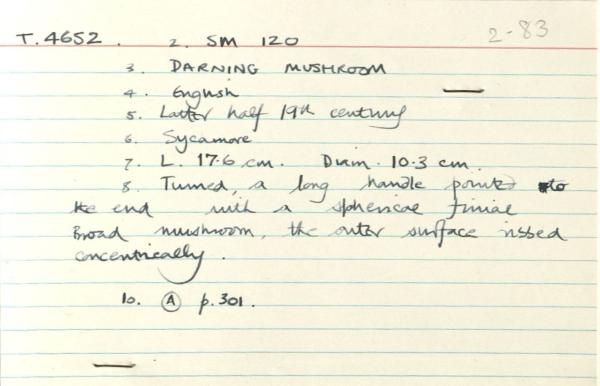 T.4652. 2. SM 120 2-83
3. DARNING MUSHROOM
4. English
5. Latter half 19th century
6. Sycamore
7. L. 17.6 cm. Diam. 10.3 cm.
8. Turned, a long handle pointed to
the end with a spherical finial
Broad mushroom, the outer surface ribbed
concentrically.
10. Ⓐ p.301.